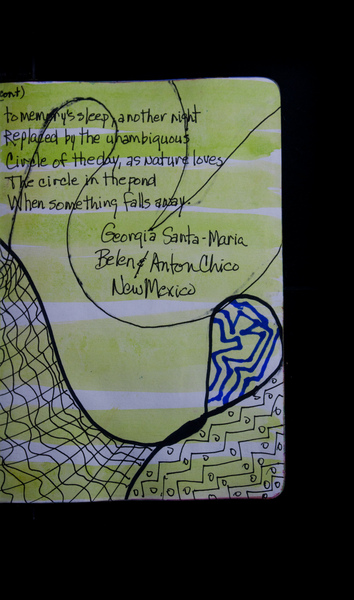 cont)
to memory's sleep, another night
Replaced by the unambiquous
Circle of the day, as Nature loves
The circle in the pond
When something falls away.
Georgia Santa-Maria
Belen & Anton Chico
New Mexico